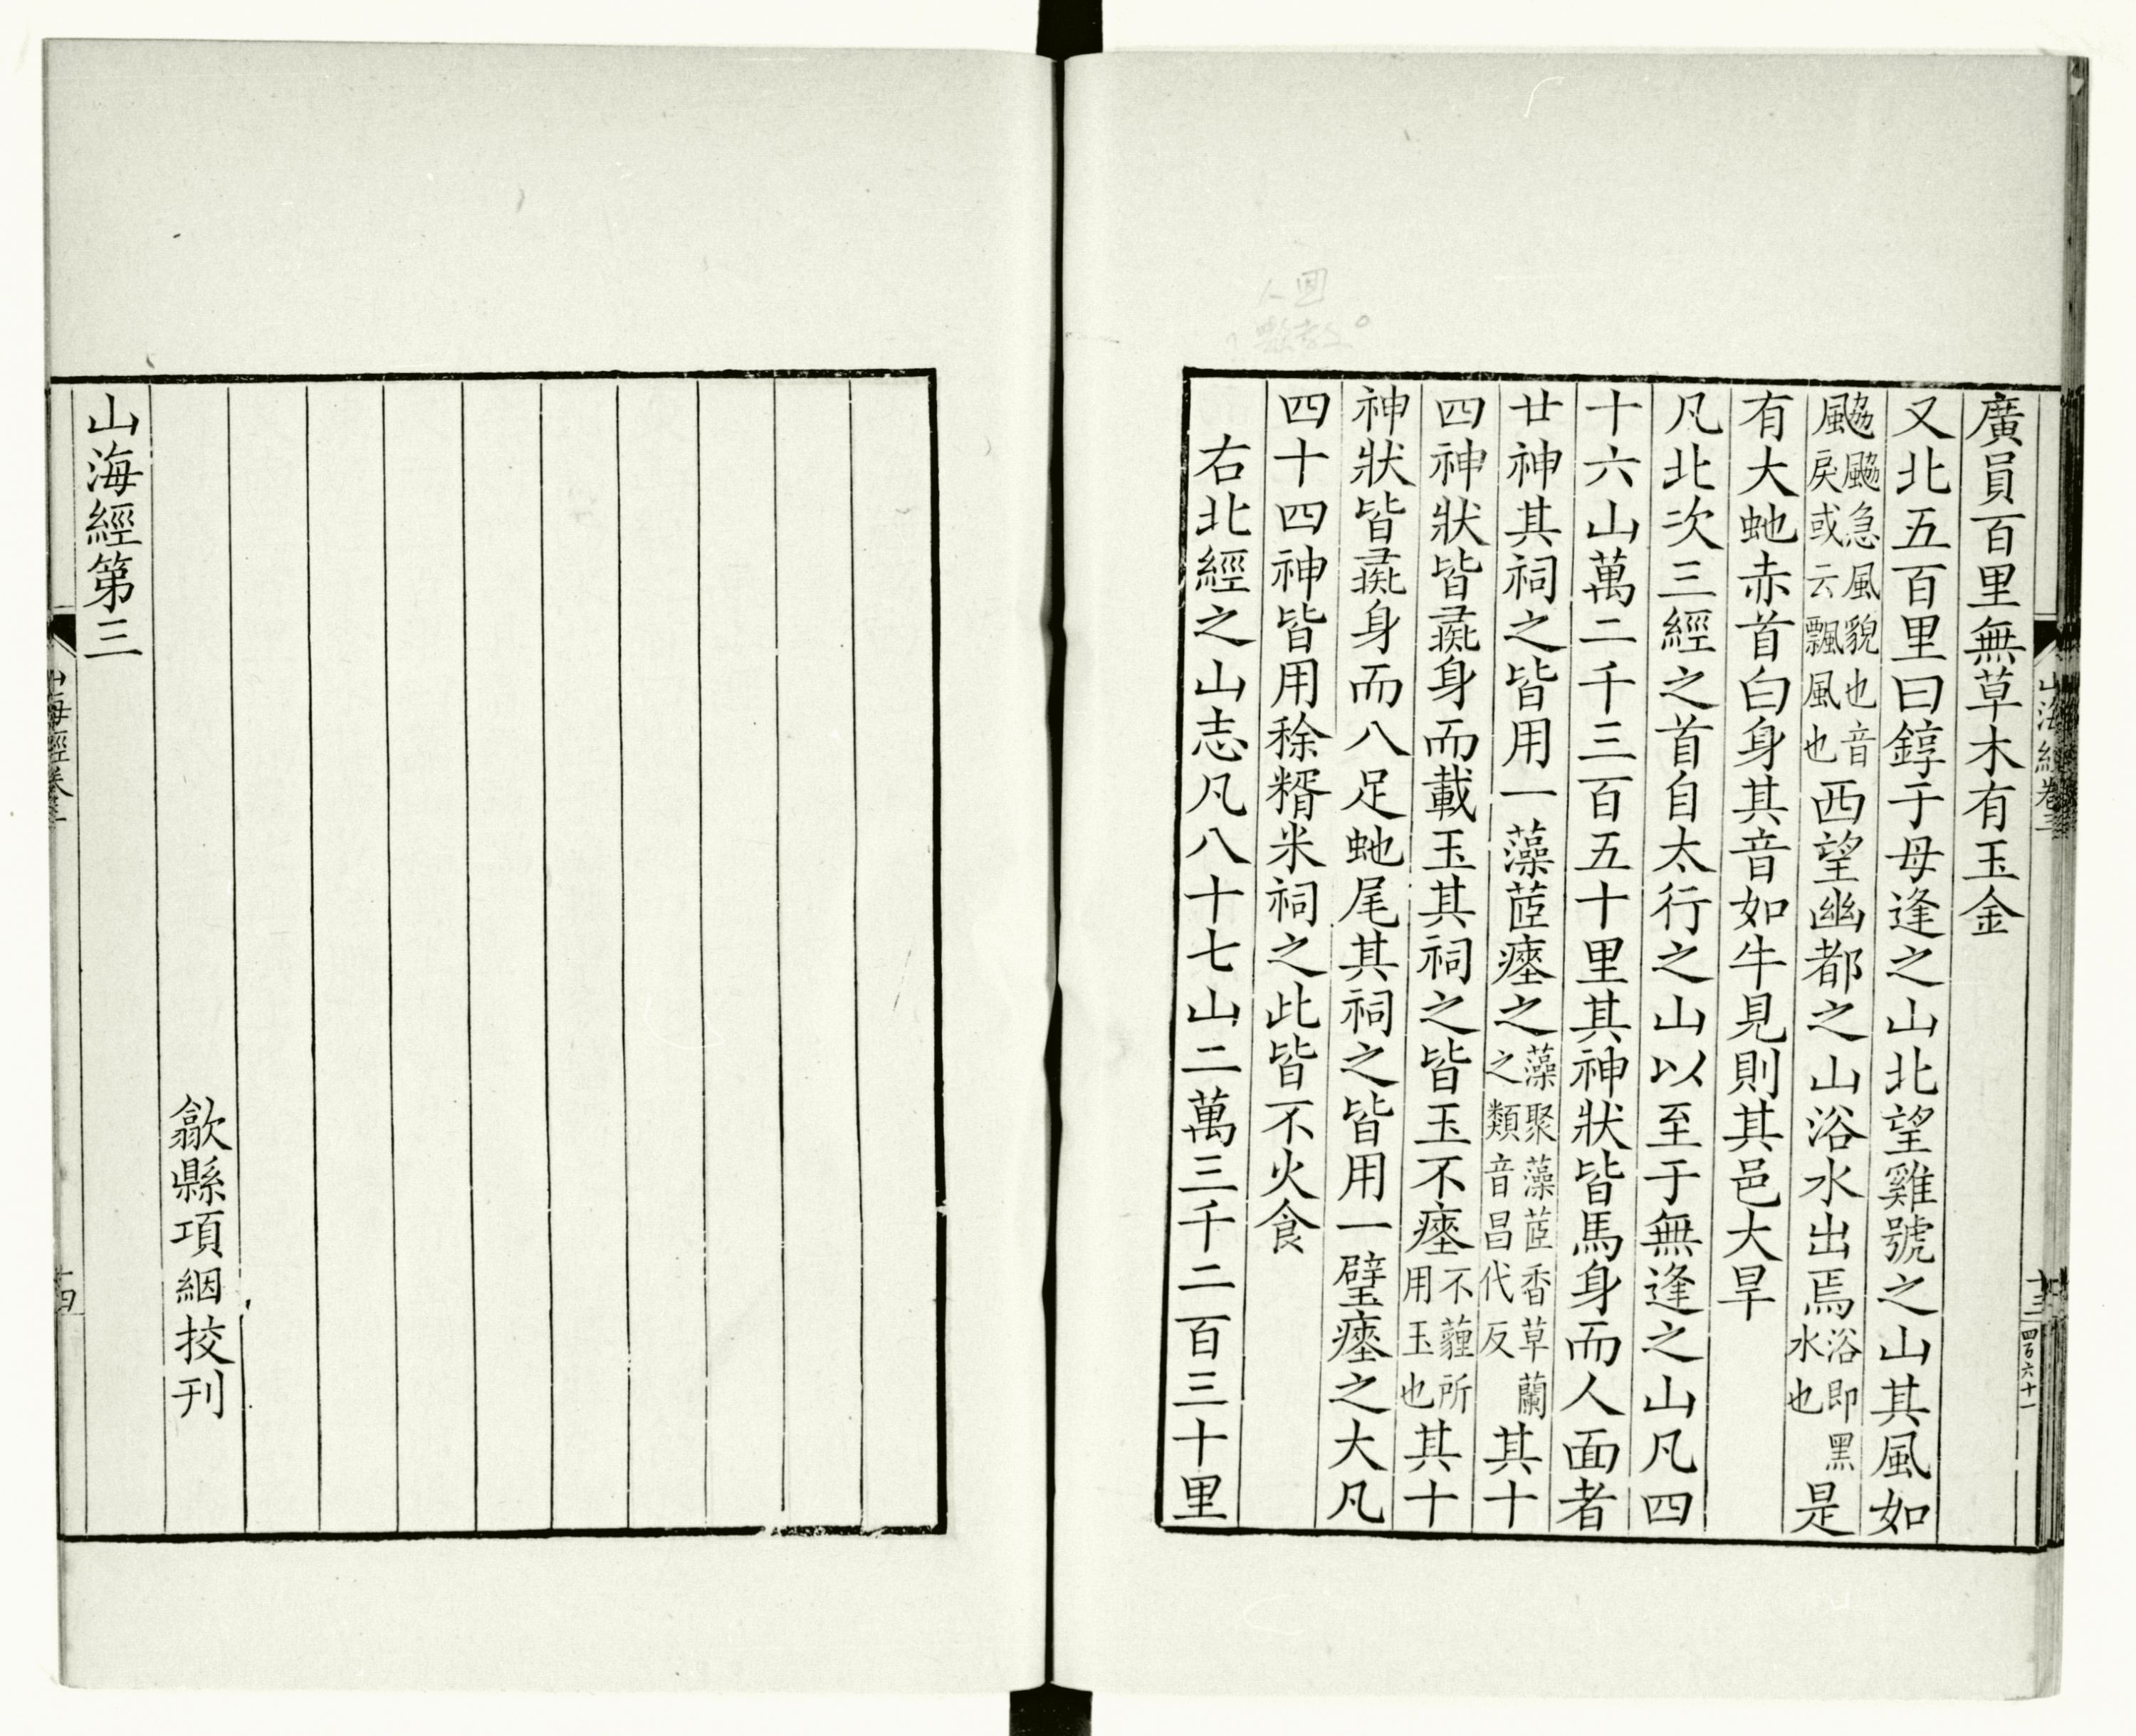 廣員百里無草木有玉金
又北五百里曰錞于母逢之山北望雞號之山其風如
飈飈急風貌也音戾或云飄風也西望幽都之山浴水出焉浴即黑水也是
有大虵赤首白身其音如牛見則其邑大旱
凡北次三經之首自太行之山以至于無逢之山凡四
十六山萬二千三百五十里其神狀皆馬身而人面者
廿神其祠之皆用一藻茝瘞之藻聚藻茝香草蘭之類音昌代反其十
四神狀皆彘身而載玉其祠之皆玉不瘞不薶所用玉也其十
神狀皆彘身而八足虵尾其祠之皆用一璧瘞之大凡
四十四神皆用稌糈米祠之此皆不火食
右北經之山志凡八十七山二萬三千二百三十里
山海經卷三
十三
四百六十一
歙縣項絪挍刊
山海經第三
山海經卷三
十四